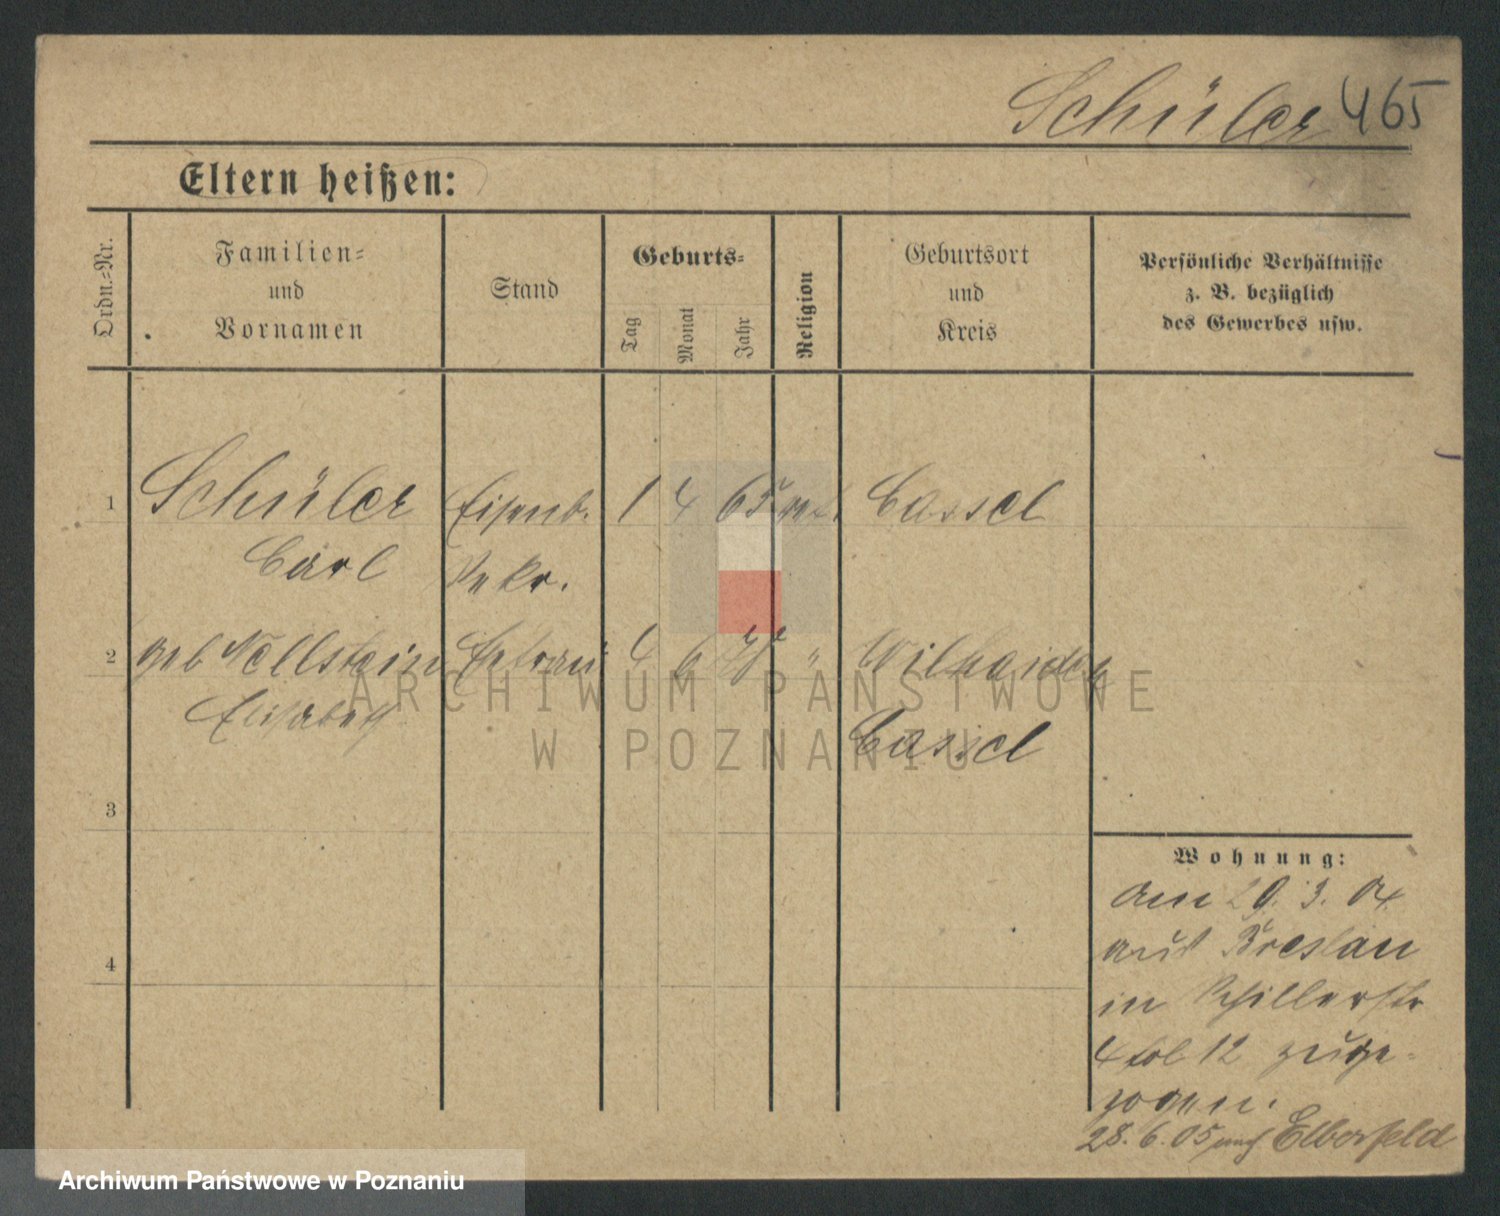 Schüler 465
Eltern heißen:
Ordn.-Nr.
Familien-
und
Vornamen
Stand
Geburts-
Tag
Monat
Jahr
Religion
Geburtsort
und
Kreis
Persönliche Verhältnisse
z. B. bezüglich
des Gewerbes usw.
1 Schüler Eisenb. 1 4 65 ref. Cassel
Carl Sekr.
2 geb Nollstein Ehefrau 4 6 " Wilheiden
Elisabeth Cassel
3
4
Wohnung:
am 29. 3. 04
aus Breslau
in Schillerstr
4 bol 12 zuge-
zogen.
28. 6. 05 nach Elberfeld
ARCHIWUM PAŃSTWOWE
W POZNANIU
Archiwum Państwowe w Poznaniu